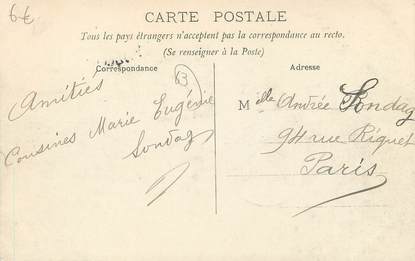 6€
CARTE POSTALE
Tous les pays étrangers n'acceptent pas la correspondance au recto.
(Se renseigner à la Poste)
Correspondance
63
Amitiés
Cousines Marie Eugénie
Sondag
Adresse
Melle Andrée Sondag
94 rue Riquet
Paris